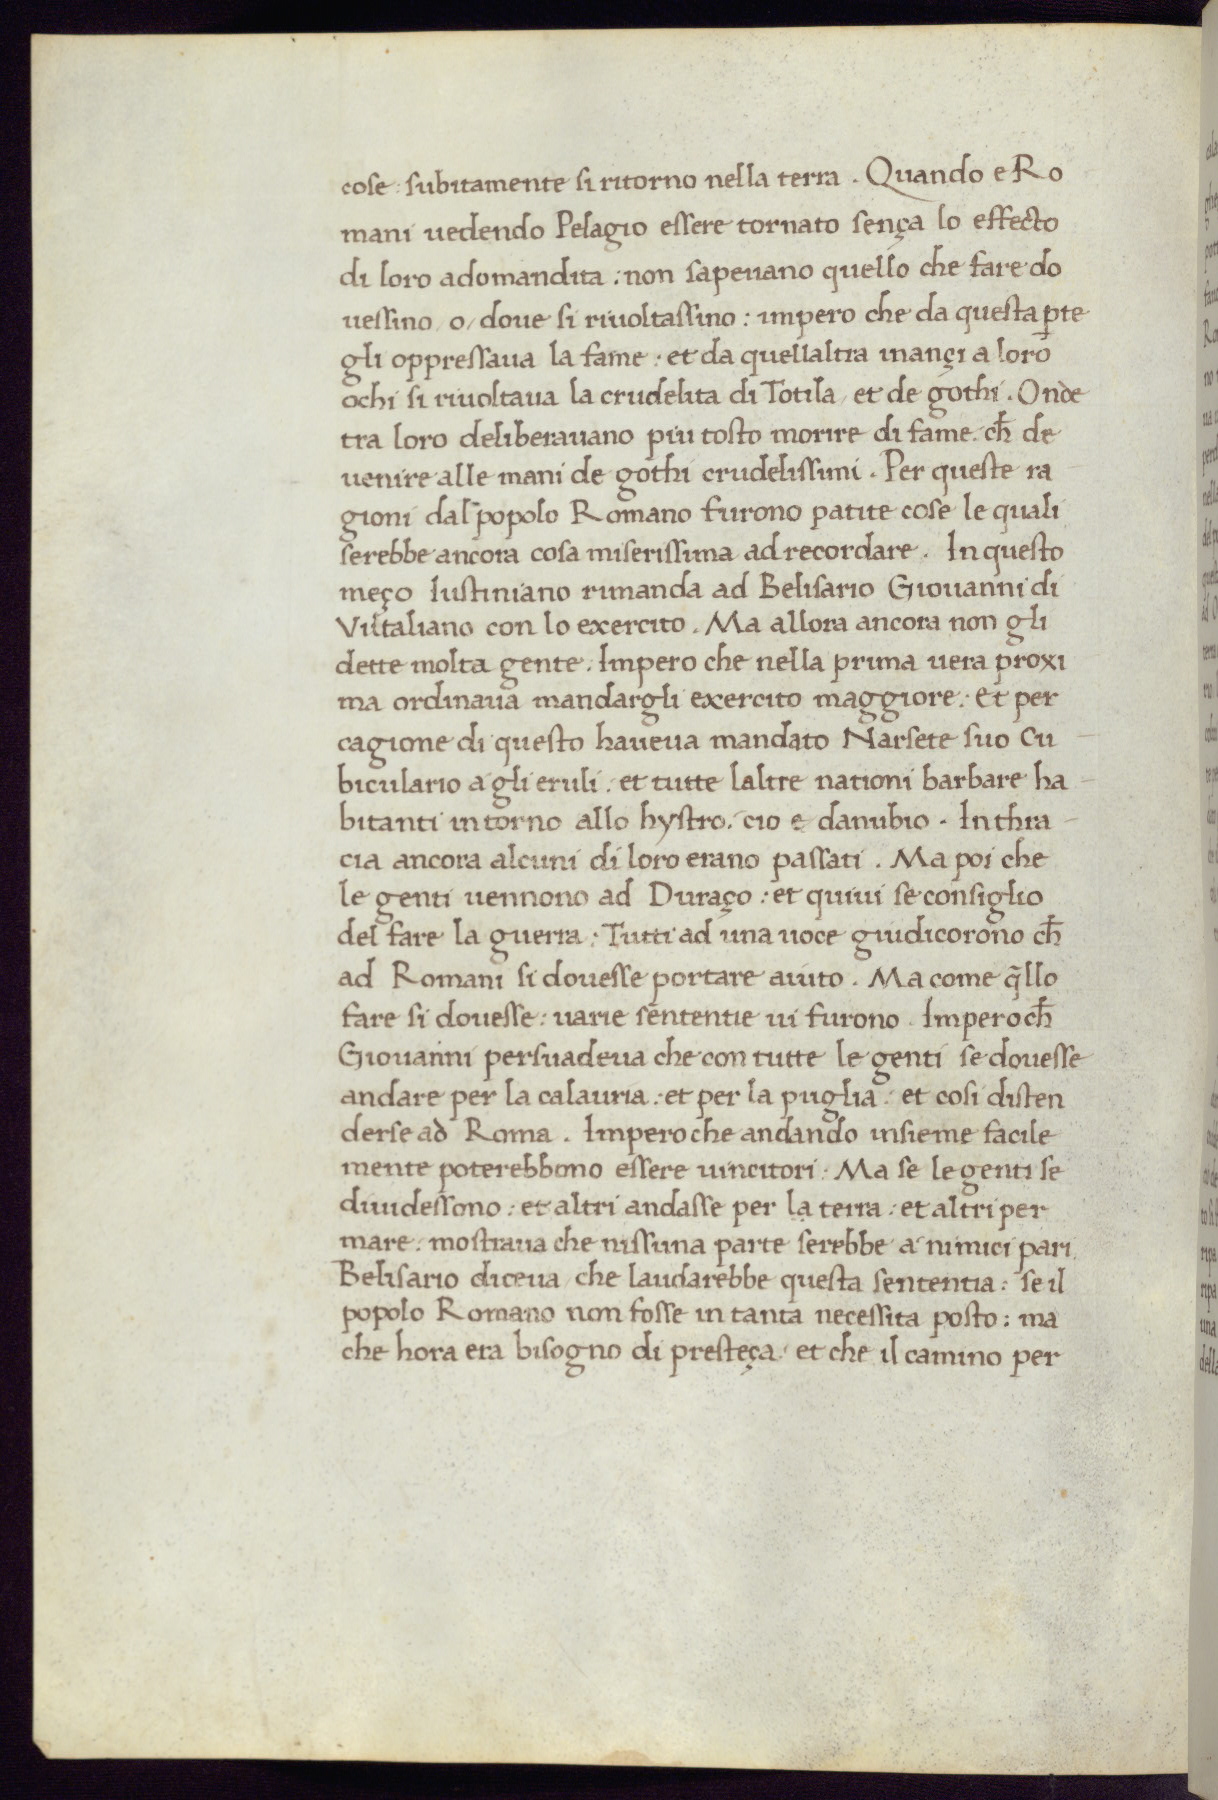 cose : subitamente si ritorno nella terra . Quando e Ro
mani uedendo Pelagio essere tornato sença lo effecto
di loro adomandita : non sapeuano quello che fare do
uessino / o / doue si riuoltassino : impero che da questa p̱te
gli oppressaua la fame : et da quellaltra inançi a loro
ochi si riuoltaua la crudelita di Totila / et de gothi . Onde
tra loro deliberauano piu tosto morire di fame . ch̄ de
uenire alle mani de gothi crudelissimi . Per queste ra
gioni dal popolo Romano furono patite cose le quali
serebbe ancora cosa miserissima ad recordare . In questo
meço Iustiniano rimanda ad Belisario Giouanni di
Vittaliano con lo exercito . Ma allora ancora non gli
dette molta gente . Impero che nella prima uera proxi
ma ordinaua mandargli exercito maggiore : et per
cagione di questo haueua mandato Narsete suo Cu
biculario a gli eruli : et tutte laltre nationi barbare ha
bitanti intorno allo hystro . cio e danubio . In thra
cia ancora alcuni di loro erano passati . Ma poi che
le genti uennono ad Duraço : et quiui se consiglio
del fare la guerra : Tutti ad una uoce giudicorono ch̄
ad Romani si douesse portare aiuto . Ma come q̄llo
fare si douesse : uarie sententie ui furono . Imperoch̄
Giouanni persuadeua che con tutte le genti se douesse
andare per la calauria : et per la puglia : et cosi disten
derse ad Roma . Impero che andando insieme facile
mente poterebbono essere uincitori : Ma se le genti se
diuidessono : et altri andasse per la terra : et altri per
mare : mostraua che nissuna parte serebbe a nimici pari
Belisario diceua / che laudarebbe questa sententia : se il
popolo Romano non fosse in tanta necessita posto : ma
che hora era bisogno di presteça : et che il camino per